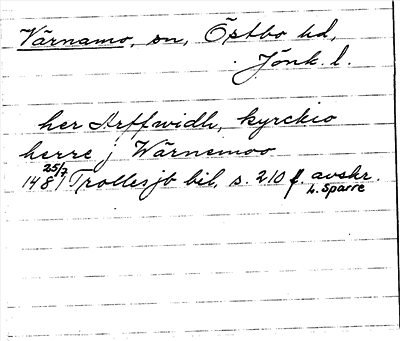 Värnamo, sn, Östbo hd,
Jönk. l.
her Arffwidh, kyrckio
herre j Wärnemoo
25/7
1481 Trollesjö bil. s. 210 f. avskr.
L. Sparre